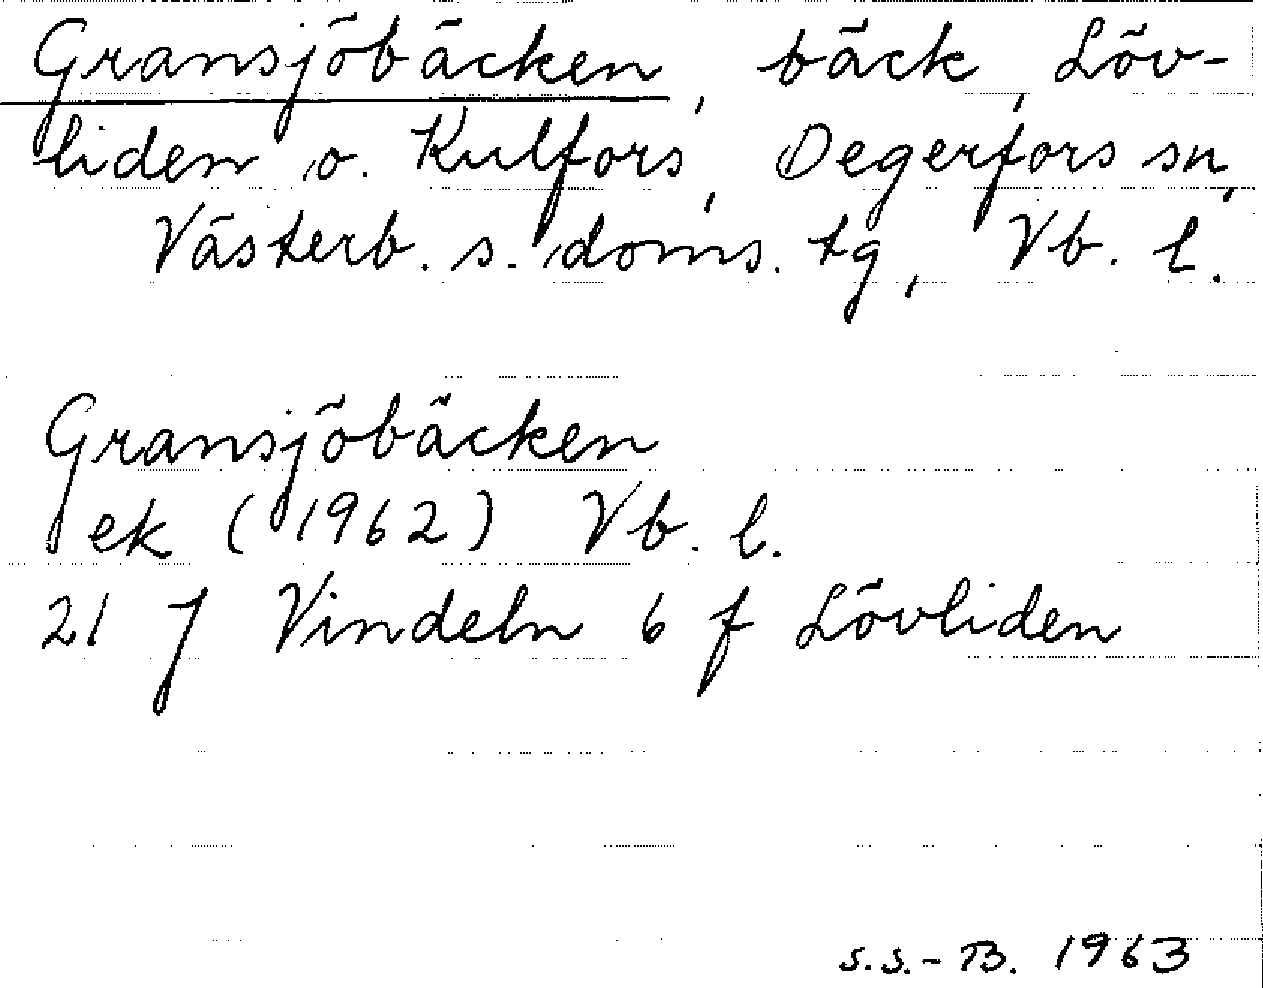 Gransjöbäcken, bäck, Löv-
liden o. Kulfors, Degerfors sn,
Västerb. s. doms. tg, Vb. l.
Gransjöbäcken
ek (1962) Vb. l.
21 J Vindeln 6 f Lövliden
S.S.-B. 1963